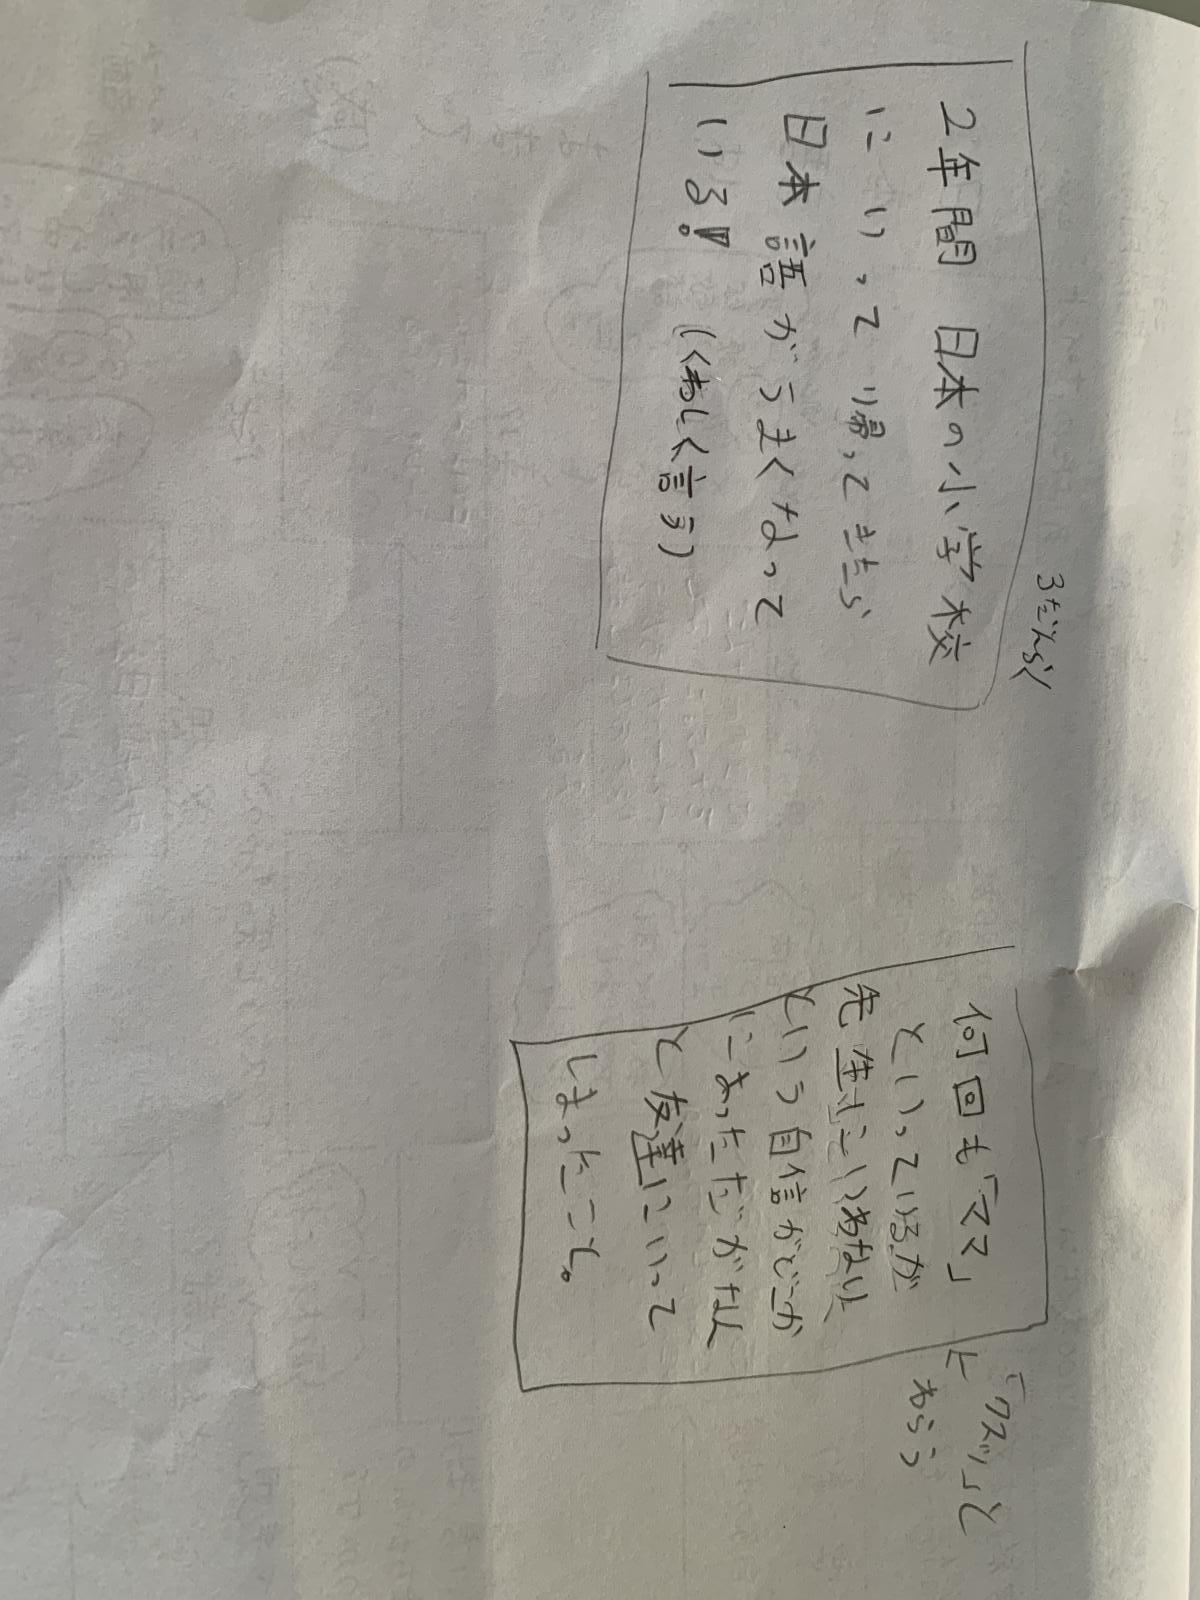 3だんらく
2年間 日本の小学校
にいって帰ってきたら
日本語がうまくなって
いる! (くわしく言う)
何回も「ママ」
といっているが
先生にいわない
という自信がどこか
にあったがない
と友達にいって
しまったこと。
「クスッ」と
わらう